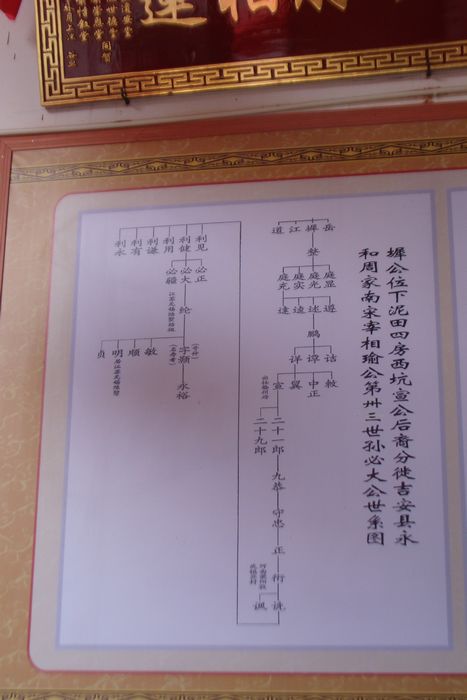 墀公位下泥田四房西坑宣公后裔分徙吉安县永
和周家南宋宰相瑜公第卅三世孙必大公世系图
岳 墀 江 道
整
庭显 庭光 庭实 庭充
遵 述 边 逵
鹏
诂 谆 详
敕 中正 翼 宣
二十一郎 二十九郎
九恭
中忠
正
衎
诜 讽
利见 利健 利用 利谦 利有 利永
必正 必大 必疆
纶
字灏 敏 顺 明 贞
永裕